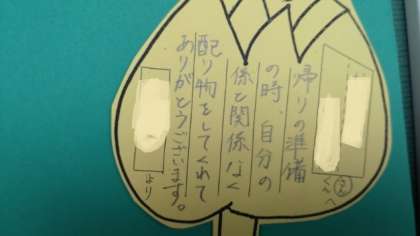 さんへ
帰りの準備
の時、自分の
係と関係なく
配り物をしてくれて
ありがとうございます。
より